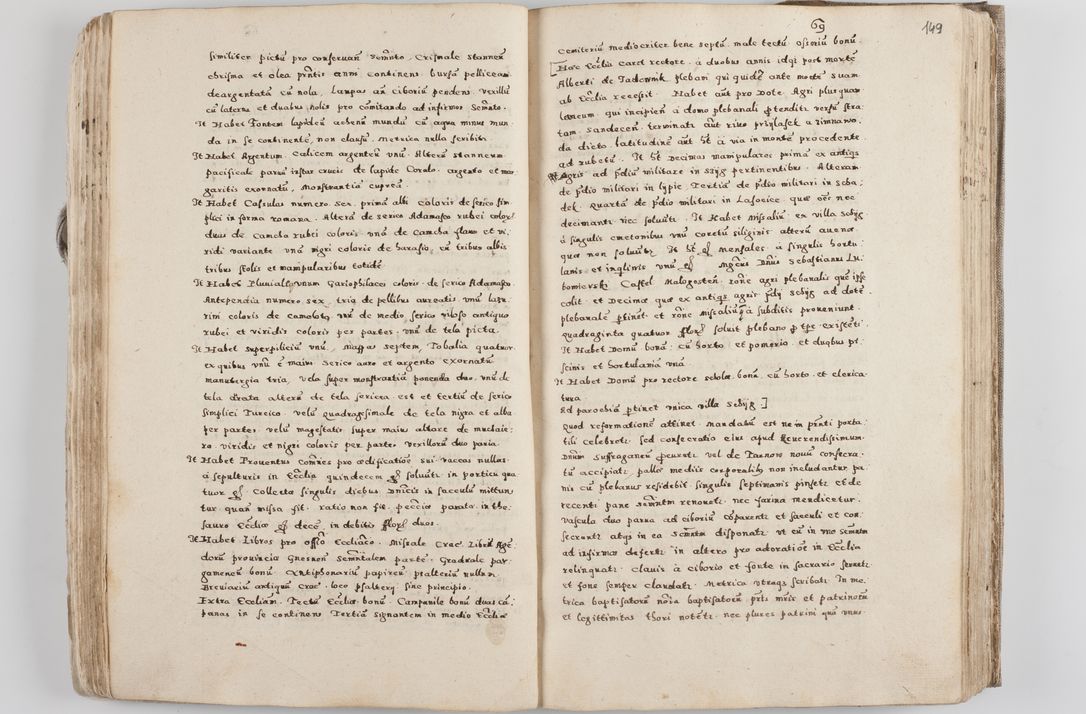 similiter pictū pro conservan̄ Scm̄nto. Crismale stanneū
chrisma et olea pn̄tis anni continens bursā pelliceam
deargentatā cū nola. Lampas an̄ ciboriū pendens. Vexillū
cū laterna et duabus nolis pro comitando ad infirmos Scm̄nto.
Jt Habet Fontem lapideū aeheno mundū cū aqua minus mun
da in se continente, non clausū. Metrica nulla scribitur
Jt Habet Argentum. Calicem argenteū vnū. Alterū stanneum
pacificale parvū instar crucis de lapide Coralo. argento et mar
garitis exornatū. Monstrantia cuprea.
Jt Habet Casulas numero. sex. primā albi coloris de serico sim
plici in forma romana. Alterā de serico Adamasco rubei coloris
duas de Camcha rubei coloris. vnā de Camcha flavo et vi,
ridi variante vnā nigri coloris de harasio, cū tribus albis
tribus stolis et manipularibus totidē
Jt Habet Pluviale vnum Gariophilacei coloris. de serico Adamasco.
Antependia numero. sex. tria de pellibus aureatis vnū lazu,
rini coloris de camoloto vnū de medio, serico viloso antiquo
rubei et viridis coloris per partes. vnū de tela picta.
Jt Habet superpiliciū vnū. Mappas septem, Tobalia quatuor
ex quibus vnū ē maius Serico auro et argento exornatū
manutergia tria. Vela super monstrantiā ponenda duo. vnū de
tela alterū de tela sericea est et tertiū de serico
simplici Turcico. Velū quadragesimale de tela nigra et alba
per partes. Velū magestatis super maius altare de muchaie:
ro. viridis et nigri coloris per partes. Vexillorū duo paria.
Jt Habet Proventus com̄nes pro aedificatiōe sui. Vaccas nullas.
a sepulturis in Ecclia quindecem gr̄ solvūtur. in porticu qua
tuor gr̄. Collecta singulis diebus Dn̄icis in sacculū mittun
tur. quan̄ missa fit. ratio non fit. pecūia parata in the,
sauro Ecclīae decē, in debitis florēn duos.
Jt Habet. Libros pro offō Ecclīaco. Missale Crac. Librū Age,
dorū provincia Gnesnen Scm̄ntalem parte. Graduale par
gameneū bonū. Antiphonariū papireū psalteriū nullum.
Breviariū antiquū Crac. loco psalterij sine principio.
Extra Eccliam. Tectū Ecclīae bonū. Campanile bonū duas cā:
panas in se continens Tertiā signantem in medio Ecclīae
69
149
Cemiteriū mediocriter bene septū. male tectū ossoriū bonū.
[Haec Ecclīa caret rectore. a duobus annis idqz post mortē
Alberti de Tadownik. plebani qui quidē ante mortē suam
ab Ecclīa recessit. Habet aūt pro Dote. Agri plusquam
laneum qui incipien̄ a domo plebanali protenditur versus stra
tam Sandecen terminatur aūt rivo przylasek a zimnawo,
da dicto. latitudinē aūt ht̄ a via in monte procedente
ad rubetū. Jt ht̄ decimas manipulares primā ex antiqs
agris ad pdiū militare in sczyg pertinentibus. Alteram
de pdio militari in lypie. Tertiā de pdio militari in Scba,
dek. Quartā de pdio militari in Lasocice. quae oēs nec
decimantur nec solvūtur. Jt Habet Missaliū ex villa Sczyg
a singulis cmetonibus vnū coretū siliginis alterū avenae.
quae non solvūtur Jt ht̄ gr̄ Mensales a singulis hortu:
lanis et inqlinis vnū gr̄. Mgcūs Dnūs Sebastianus Lu,
bomierski Castel Malogosten. rōne agri plebanalis quē ipse
colit. et Decimae quae ex antiqs agris pdij sczyg ad dotē
plebanalē ptinet et rōne Missaliūqz a subditis proveniunt.
Quadraginta quatuor flore solvit plebano p tpe existēti.
Jt Habet Domū bonā: cū horto. et pomerio. et duobus pi:
scinis et hortulaniā vnā.
Jt Habet Domū pro rectore scholae bonā. cū horto. et clerica
tura
Ad parochiā ptinet vnica villa Sczyg]
Quod reformationē attinet. Mandatū est ne in pn̄ti porta:
tili celebretur. sed consecratio eius apud Reverendissimum.
Dnūm Suffraganeū procuretur vel de Tarnow novū consecra.
tū accipiatur. palla mediis corporalibus non includantur pa,
nis cū plebanus residebit. singulis septimanis pinsetur et de
recenti pane scm̄ntm renovetur. nec farina mendicetur.
Vascula duo parva ad ciboriū cōparentur et sacculi et con:
secrentur atqz in ea Scm̄ntm disponatur vt cū in vno Scm̄ntm
ad infirmos defertur in altero pro adoratiōe in Ecclīa
relinquatur. Clavis a ciborio et fonte in sacrario servetur
et fons semper claudatur. Metrica vtraqz scribatur. In me,
trica baptisatorū nōia baptisatorū pr̄is mr̄is et patrinorū
et legittimitas thori notetur. nec plures patrini quā vnus